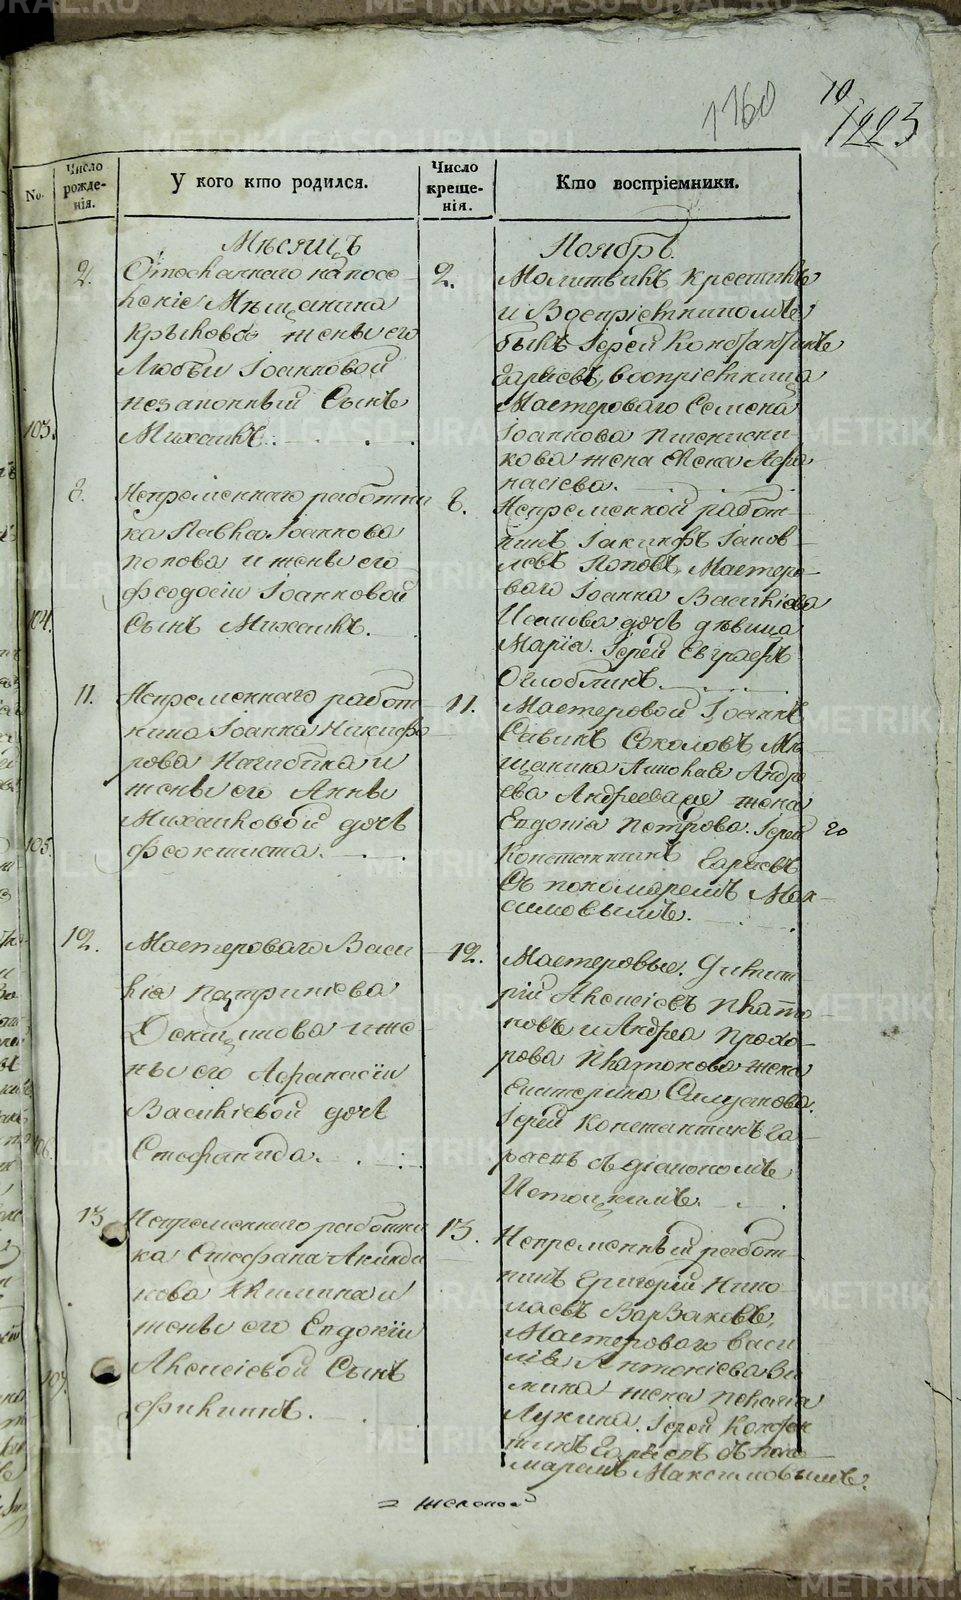 1160
10
1223
No.
Число рожде-нія.
У кого кто родился.
Число креще-нія.
Кто воспріемники.
Мѣсяцъ
Ноябрь.
103.
2.
Отосланнаго на посе-
леніе Мѣщанина
жены его
Любви Іоанновой
незаконный Сынъ
Михаилъ.
2.
Молитвилъ Крестилъ
и Воспріемникомъ
былъ Іерей Константинъ
воспріемница
Мастероваго Семена
Іоаннова
кова жена Елена Афа
насіева.
104.
8.
Непременнаго работни
ка Павла Іоаннова
попова и жены его
Феодосіи Іоанновой
Сынъ Михаилъ.
8.
Непременной работ-
никъ Іакинфъ Іанов-
левъ Поповъ, Мастеро-
ваго Іоанна Василіева
дочь дѣвица
Марія. Іерей Евграфъ
Оглоблинъ.
105.
11.
Непременнаго работ-
ника Іоанна Никифо
рова Нагибина и
жены его Анны
Михаиловой дочь
Феоктиста.
11.
Мастеровой Іоаннъ
Савинъ Соколовъ Мѣ-
щанина Николая Андре
ева Андреева же жена
Евдокія Петрова. Іерей
20
Константинъ
Съ пономаремъ Мак-
симовымъ.
106.
12.
Мастероваго Васи
лія Патрикіева
и же
ны его Афанасіи
Василіевой дочь
Стефанида.
12.
Мастеровые. Димит
рій Алексіевъ Плато
новъ и Андреа Прохо-
рова Платонова жена
Екатерина
Іерей Константинъ
съ діакономъ
Истоминымъ.
107.
13
Непременнаго работни
ка Стефана Акинди
нова и
жены его Евдокіи
Алексіевой Сынъ
Филиппъ.
13.
Непременный работ-
никъ Григорій Нико
лаевъ
Мастероваго Васи
лія Антоніева
жена Пелагіа
Лукина. Іерей Констан
тинъ съ поно
маремъ Максимовымъ.